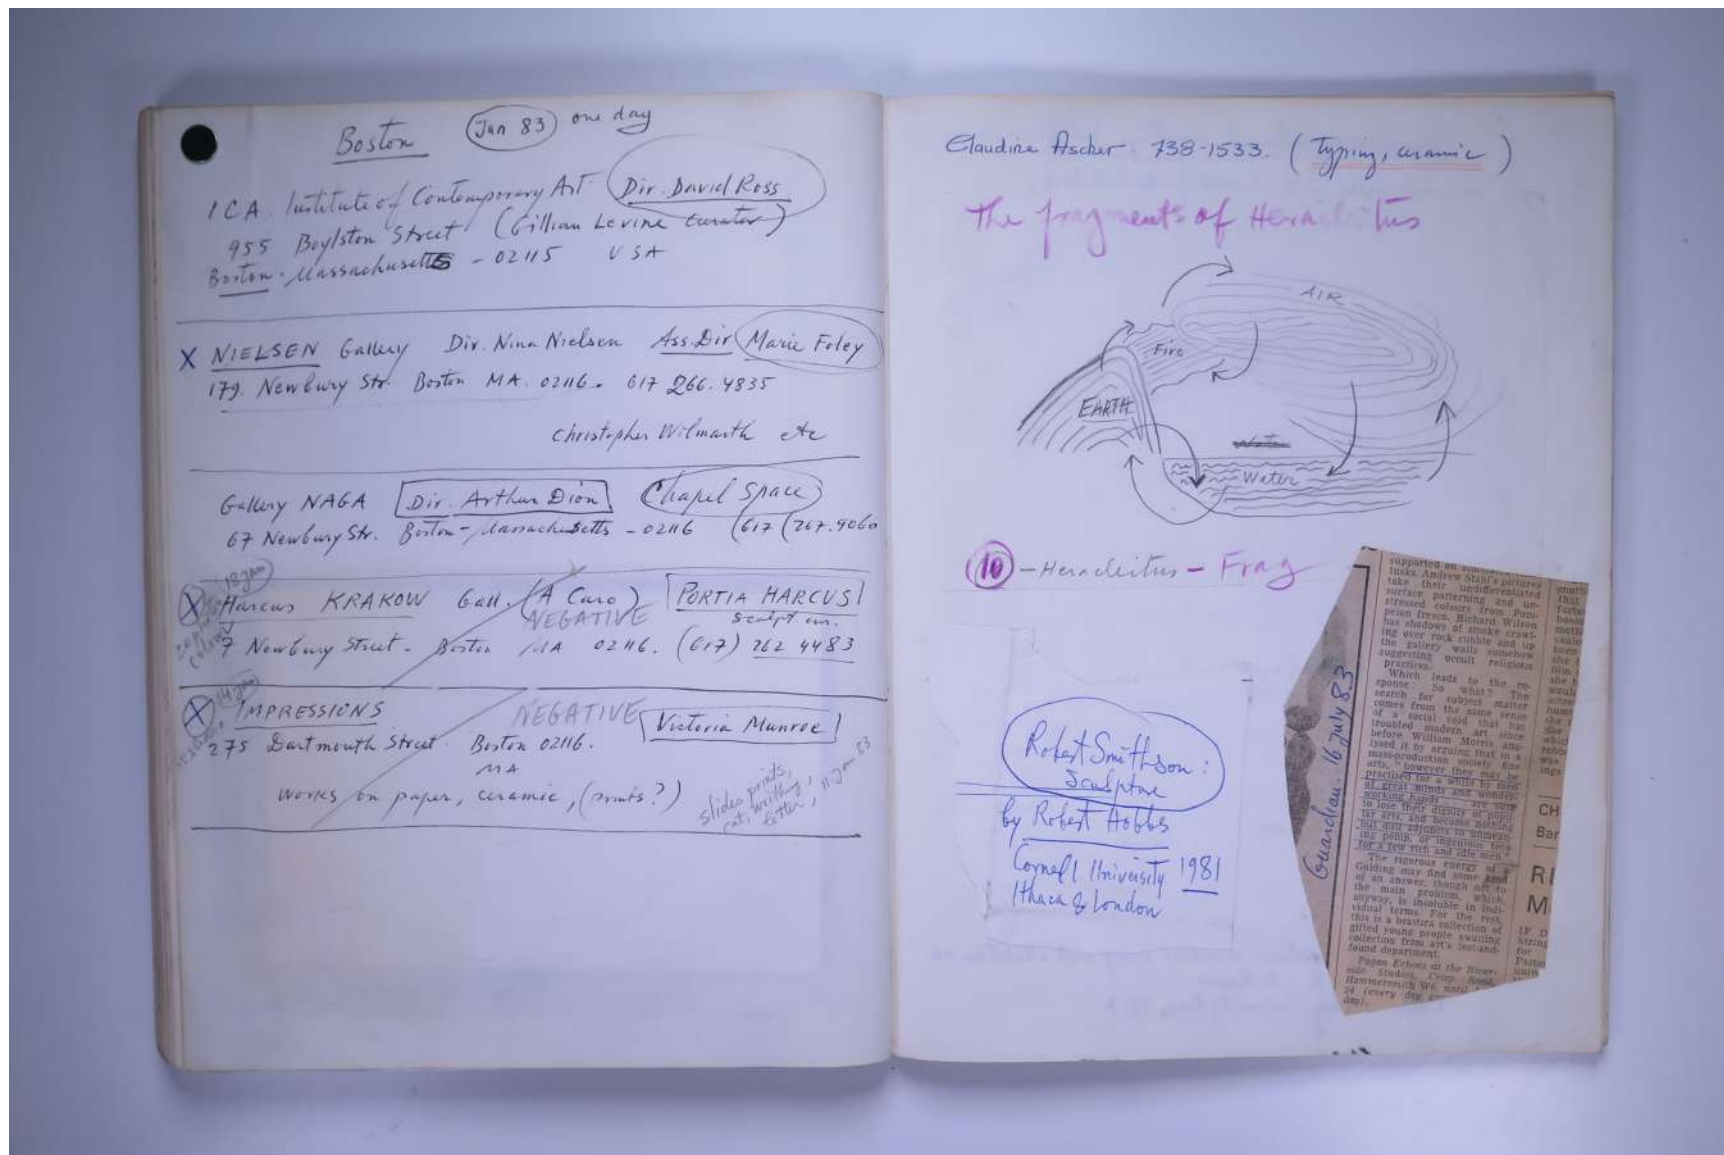 Boston (Jan 83) one day
ICA. Institute of Contemporary Art. Dir. David Ross
955 Boylston Street (Gillian Levine curator)
Boston. Massachusetts - 02115 USA
X NIELSEN Gallery Dir. Nina Nielsen Ass. Dir Marie Foley
179. Newbury Str. Boston MA. 02116. 617 266. 4835
Christopher Wilmarth etc
Gallery NAGA Dir. Arthur Dion Chapel Space
67 Newbury Str. Boston - Massachusetts - 02116 (617 (267.9060
18 Jan
X Harcus KRAKOW Gall. (A Caro) PORTIA HARCUS
NEGATIVE
7 Newbury Street - Boston MA 02116. (617) 262 4483
colour
14 Jan
X IMPRESSIONS NEGATIVE Victoria Munroe
275 Dartmouth Street. Boston 02116.
MA
works on paper, ceramic, (prints?)
slides prints,
letter, 11 Jan 83
Claudine Ascher. 738-1533. (typing, ceramic)
The fragments of Heracleitus
AIR
Fire
EARTH
Water
Water
10 - Heracleitus - Frag
Robert Smithson:
Sculpture
by Robert Hobbs
Cornell University 1981
Ithaca & London
Guardian. 16 July 83
tusks. Andrew Stahl's pictures
take their undifferentiated
surface patterning and un-
stressed colours from Pom-
peian fresco. Richard Wilson
has shadows of smoke crawl-
ing over rock rubble and up
the gallery walls somehow
suggesting occult religious
practices.
Which leads to the re-
sponse: So what? The
search for subject matter
comes from the same sense
of a social void that has
troubled modern art since
before William Morris ana-
lysed it by arguing that in a
mass-production society fine
arts, "however they may be
practised for a while by men
of great minds and wonder-
working hands are sure
to lose their dignity of popu-
lar arts, and become nothing
but dull adjuncts to unmean-
ing pomp, or ingenious toys
for a few rich and idle men."
The rigorous energy of a
Golding may find some kind
of an answer, though not to
the main problem, which,
anyway, is insoluble in indi-
vidual terms. For the rest,
this is a bravura collection of
gifted young people awaiting
collection from art's lost-and-
found department.
Pagan Echoes at the River-
side Studios, Crisp Road,
Hammersmith W6, until
24 (every day
day).
CH
Bar
RI
M